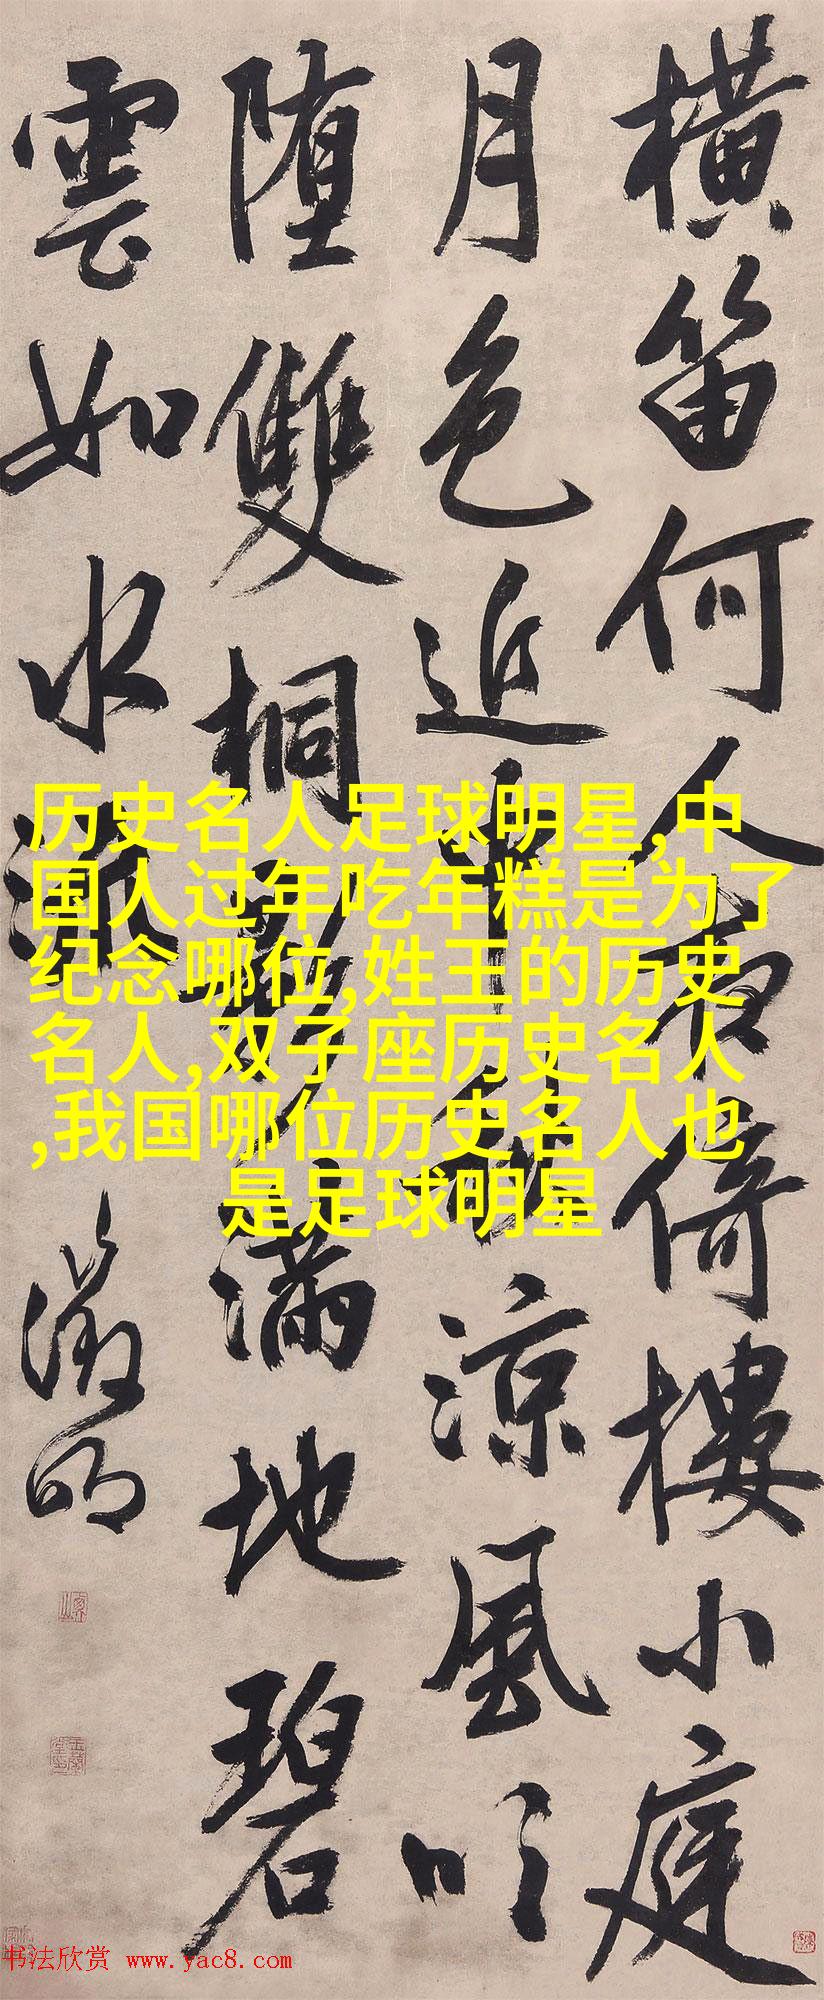 橫笛何人夜倚樓小庭
月色近中秋涼風吹
堕雙桐影滿地碧
雲如水流
徵明
历史名人足球明星,中
国人过年吃年糕是为了
纪念哪位,姓王的历史
名人,双子座历史名人
,我国哪位历史名人也
是足球明星
书法欣赏 www.yac8.com